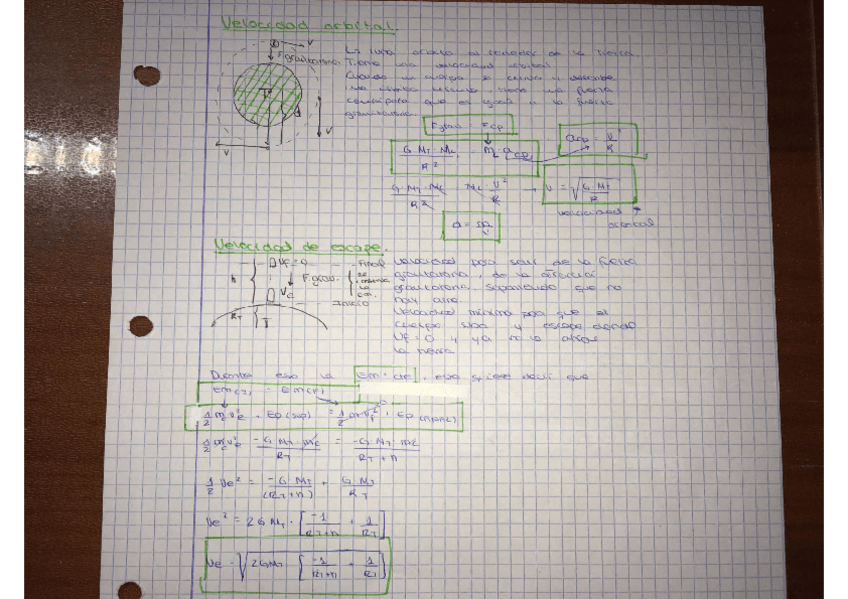 Velocidad orbital.
V
F gravitatoria
La luna orbita al rededor de la tierra.
Tiene una velocidad orbital
Cuando un cuerpo
fuerza
centrípeta que es igual a la fuerza
gravitatoria.
T
d
V
V
Fgrav = Fcp
G·MT·ML / R² = mL·acp
acp = V² / R
G·MT·ML / R² = ML·V² / R → V = √(G·MT / R)
velocidad orbital
Velocidad de escape.
Vf=0 Final
h F.grav.
Ve
Inicio
RT T
Velocidad para salir de la fuerza
gravitatoria, de la atracción
gravitatoria. Suponiendo que no
hay aire.
Velocidad mínima para que el
cuerpo suba y escape donde
Vf=0 y ya no lo atrae
la tierra
Durante eso la Em = cte, eso quiere decir que
Em(i) = Em(f)
½ mc ve² + Ep(sup) = ½ m vf² + Ep(final)
½ mc ve² - G·MT·mc / RT = -G·MT·mc / RT+h
½ Ve² = -G·MT / (RT+h) + G·MT / RT
Ve² = 2GMT · [-1 / RT+h + 1 / RT]
Ve = √(2GMT [-1 / RT+h + 1 / RT])